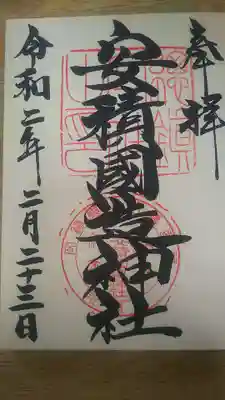 奉拝
安積國造神社
令和二年 二月二十三日